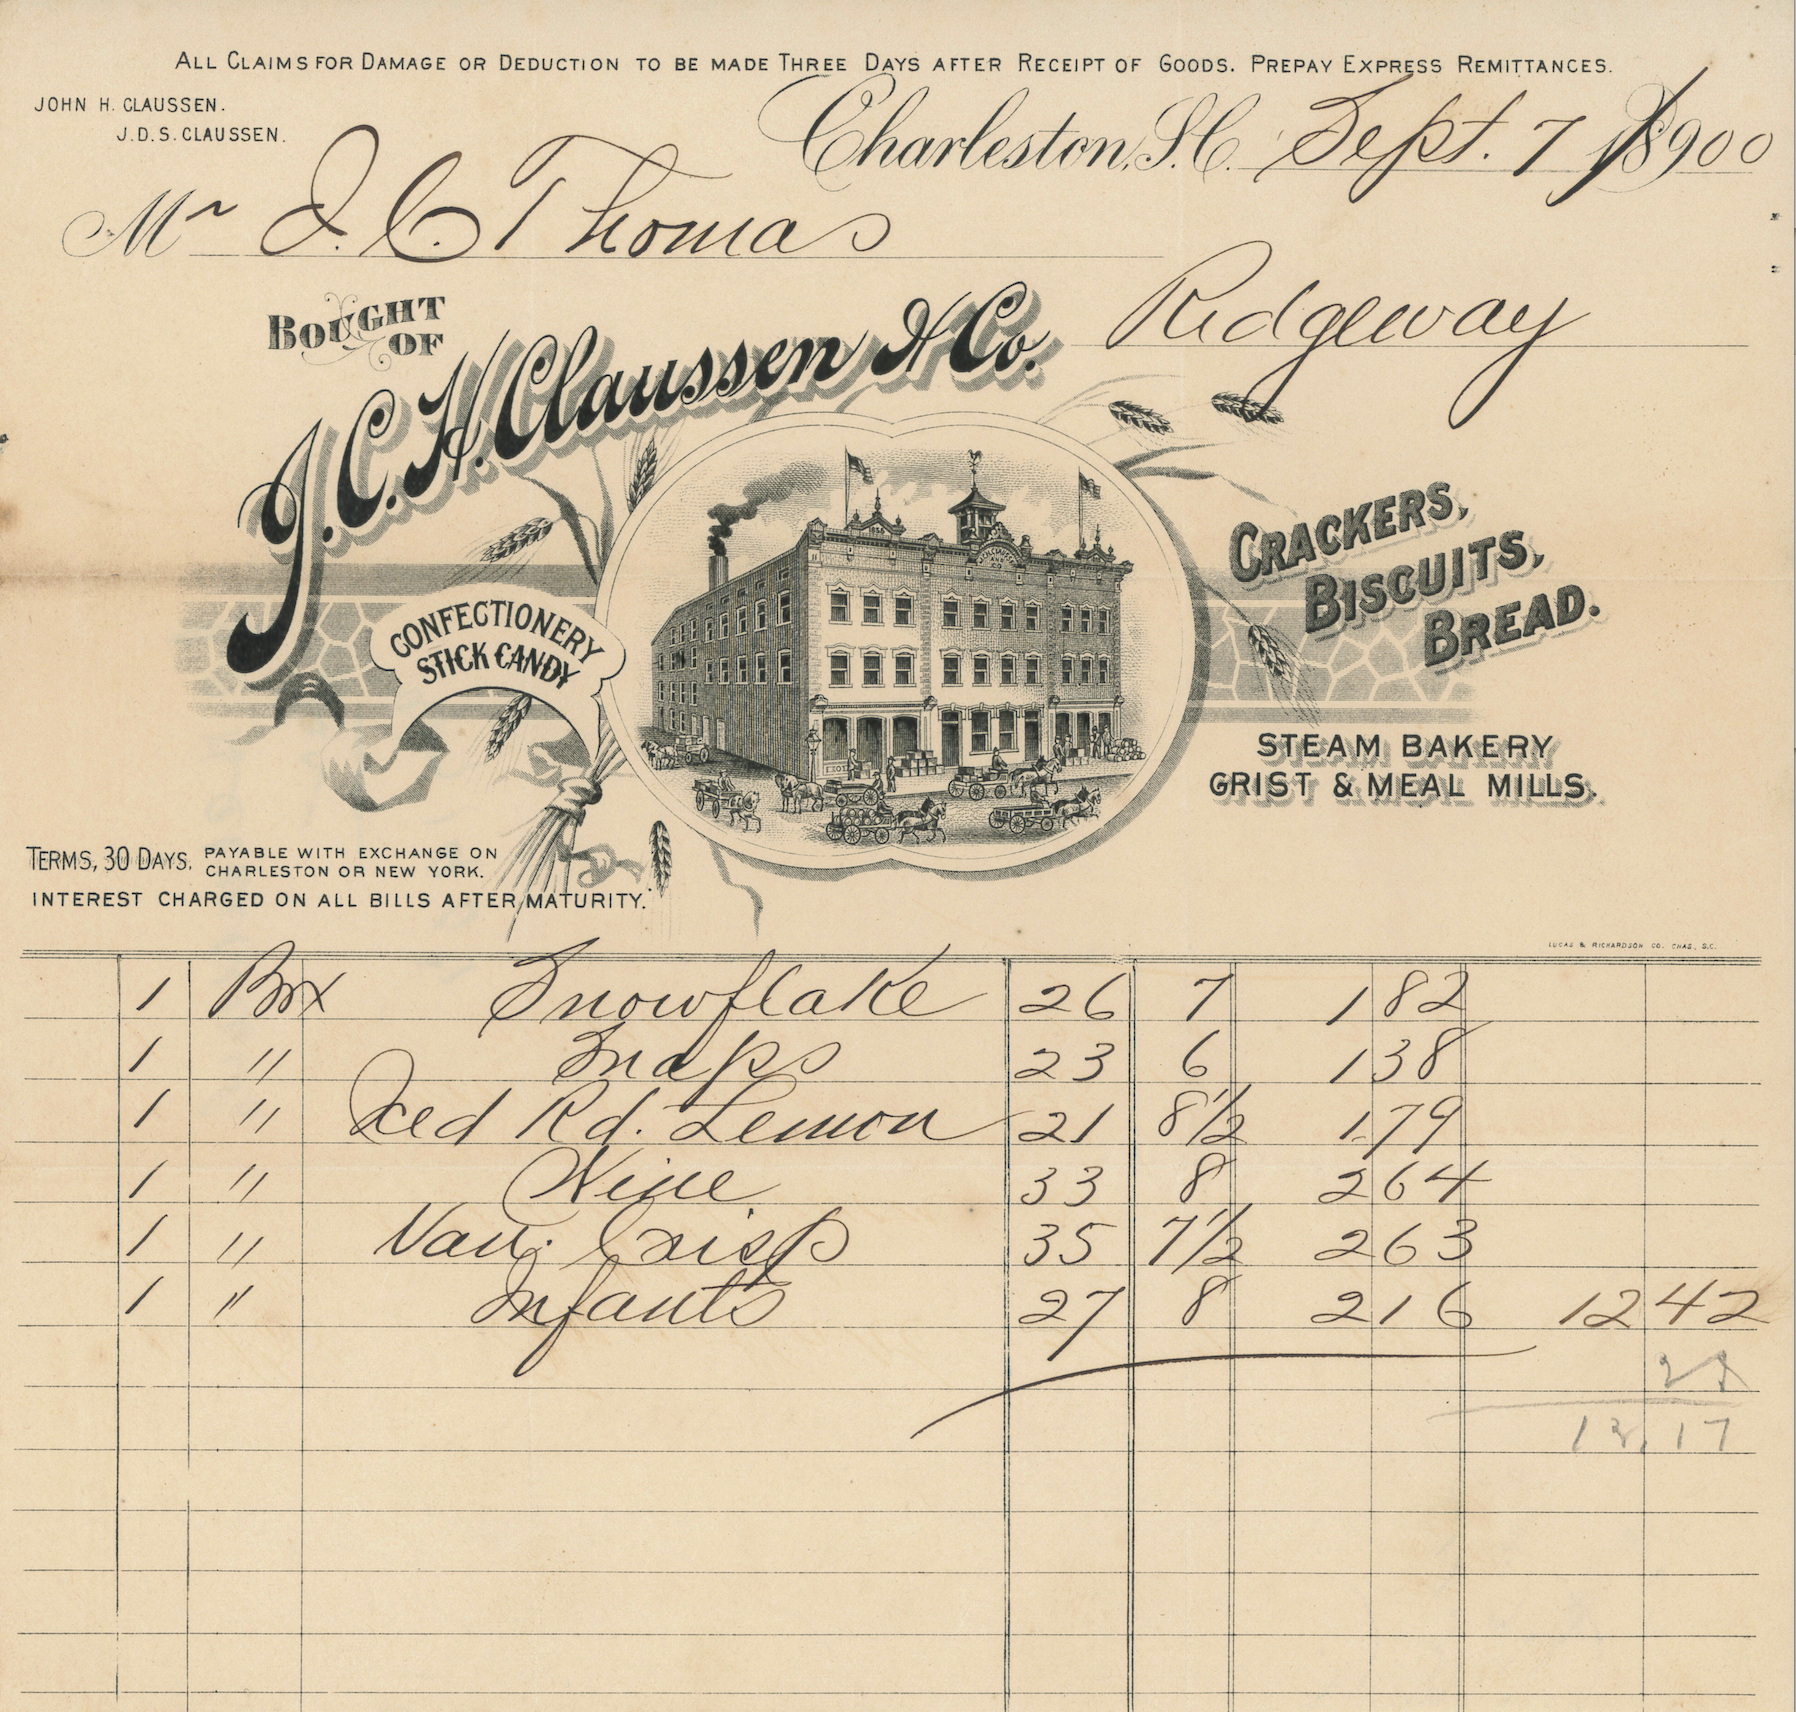 ALL CLAIMS FOR DAMAGE OR DEDUCTION TO BE MADE THREE DAYS AFTER RECEIPT OF GOODS. PREPAY EXPRESS REMITTANCES.
JOHN H. CLAUSSEN.
J.D.S. CLAUSSEN.
Charleston, S.C. Sept. 7 1900
Mr J. C. Thomas
Ridgeway
BOUGHT OF
J.C.H. Claussen & Co.
CONFECTIONERY
STICK CANDY
CRACKERS,
BISCUITS,
BREAD.
STEAM BAKERY
GRIST & MEAL MILLS.
TERMS, 30 DAYS. PAYABLE WITH EXCHANGE ON
CHARLESTON OR NEW YORK.
INTEREST CHARGED ON ALL BILLS AFTER MATURITY.
LUCAS & RICHARDSON CO. CHAS., S.C.
1 Box Snowflake 26 7 1 82
1 " Snaps 23 6 1 38
1 " Iced Rd. Lemon 21 8 1/2 1 79
1 " 33 8 2 64
1 " Van. Crisp 35 7 1/2 2 63
1 " Infants 27 8 2 16 12 42